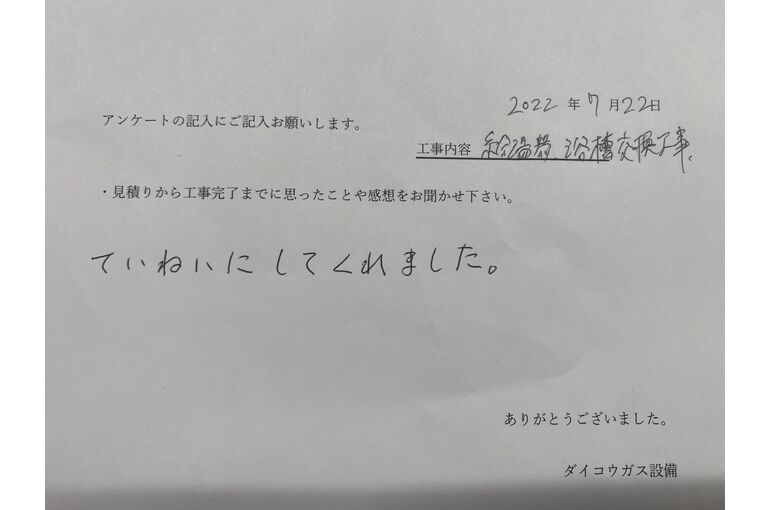 2022年7月22日
アンケートの記入にご記入お願いします。
工事内容 給湯器、浴槽交換工事、
・見積りから工事完了までに思ったことや感想をお聞かせ下さい。
ていねいにしてくれました。
ありがとうございました。
ダイコウガス設備